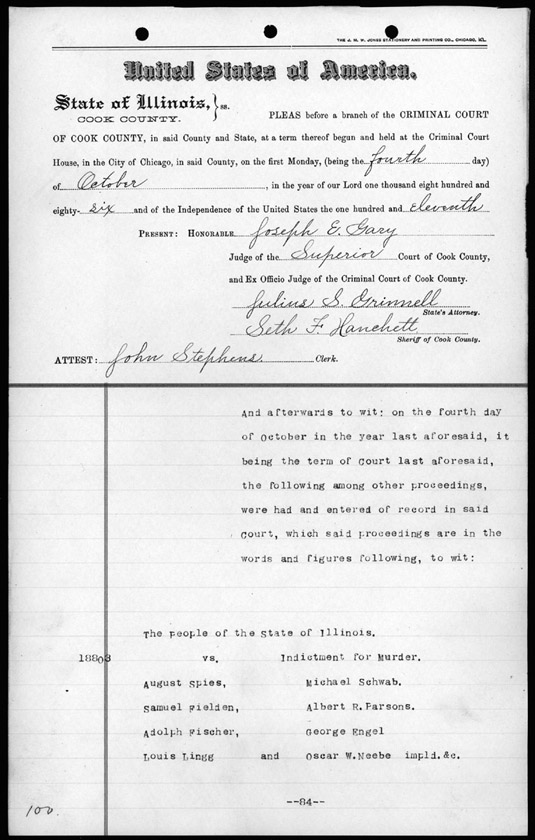 THE J. M. W. JONES STATIONERY AND PRINTING CO., CHICAGO, ILL.
United States of America.
State of Illinois, } ss.
COOK COUNTY.
PLEAS before a branch of the CRIMINAL COURT
OF COOK COUNTY, in said County and State, at a term thereof begun and held at the Criminal Court
House, in the City of Chicago, in said County, on the first Monday, (being the fourth day)
of October, in the year of our Lord one thousand eight hundred and
eighty- six and of the Independence of the United States the one hundred and eleventh
PRESENT: HONORABLE Joseph E. Gary
Judge of the Superior Court of Cook County,
and Ex Officio Judge of the Criminal Court of Cook County.
Julius S. Grinnell
State's Attorney.
Seth F. Hanchett
Sheriff of Cook County.
ATTEST: John Stephens. Clerk.
And afterwards to wit: on the fourth day
of October in the year last aforesaid, it
being the term of court last aforesaid,
the following among other proceedings,
were had and entered of record in said
Court, which said proceedings are in the
words and figures following, to wit:
The people of the State of Illinois.
18803 vs. Indictment for Murder.
August Spies, Michael Schwab.
Samuel Fielden, Albert R. Parsons.
Adolph Fischer, George Engel
Louis Lingg and Oscar W. Neebe impld. &c.
--84--
100.